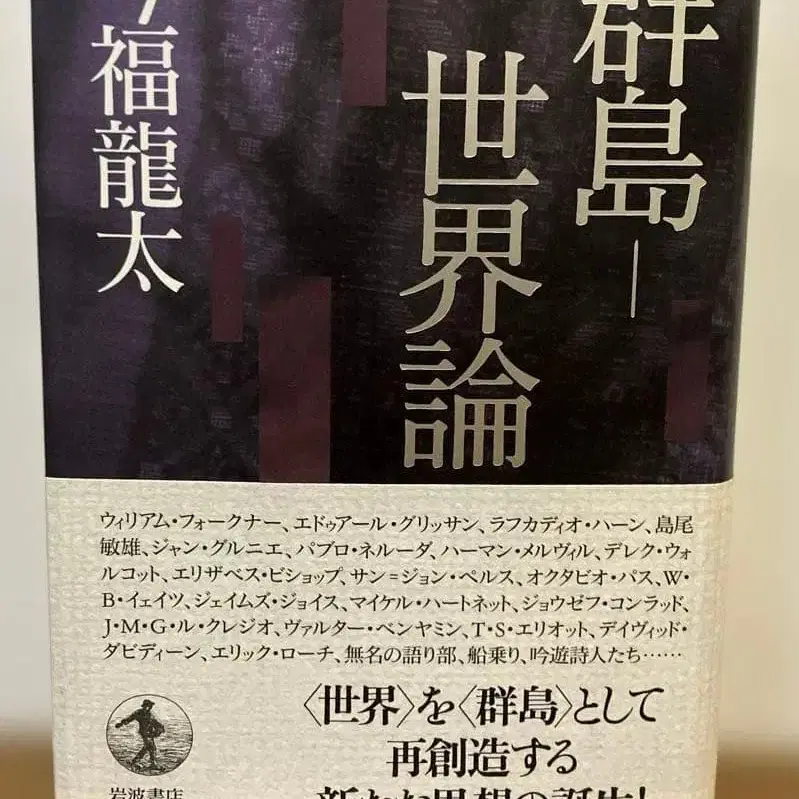 群島―
世界論
今福龍太
ウィリアム・フォークナー、エドゥアール・グリッサン、ラフカディオ・ハーン、島尾
敏雄、ジャン・グルニエ、パブロ・ネルーダ、ハーマン・メルヴィル、デレク・ウォ
ルコット、エリザベス・ビショップ、サン=ジョン・ペルス、オクタビオ・パス、W・
B・イェイツ、ジェイムズ・ジョイス、マイケル・ハートネット、ジョウゼフ・コンラッド、
J・M・G・ル・クレジオ、ヴァルター・ベンヤミン、T・S・エリオット、デイヴィッド・
ダビディーン、エリック・ローチ、無名の語り部、船乗り、吟遊詩人たち……
〈世界〉を〈群島〉として
再創造する
新たな思想の誕生!
岩波書店